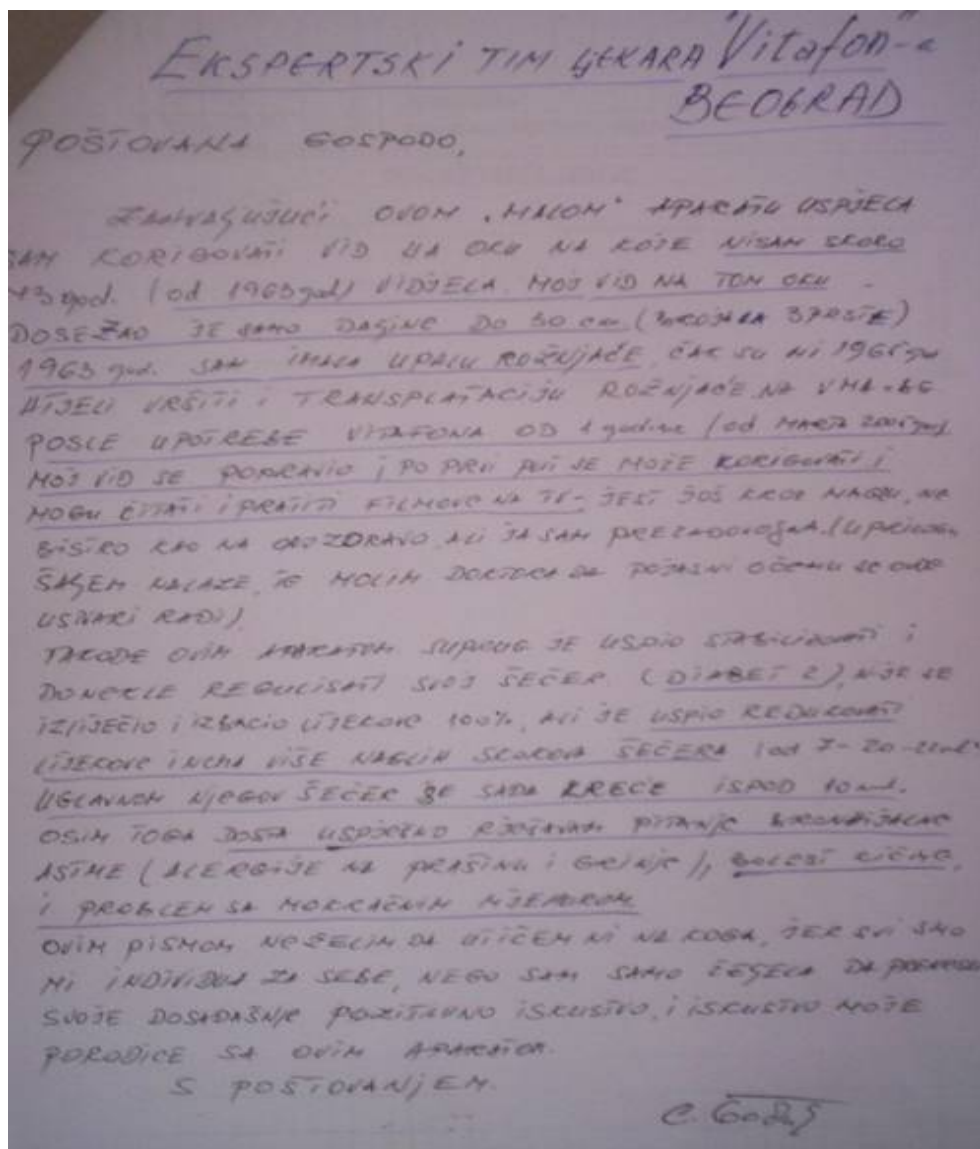 EKSPERTSKI TIM LJEKARA "Vitafon"-a
BEOGRAD
POŠTOVANA GOSPODO,
ZAHVALJUJUĆI OVOM "MALOM" APARATU USPJELA
SAM KORIGOVATI VID NA OKU NA KOJE NISAM SKORO
god. (od 1963 god) VIDJELA. MOJ VID NA TOM OKU
DOSEŽAO JE SAMO DALJINE DO 30 cm (BROJALA PRSTE)
1963 god. SAM IMALA UPALU ROŽNJAČE, ČAK SU MI
HTJELI VRŠITI I TRANSPLATACIJU ROŽNJAČE NA VMA-BG
POSLE UPOTREBE VITAFONA OD 1 godine (od MARTA
MOJ VID SE POPRAVIO I PO PRVI PUT SE MOŽE KORIGOVATI I
MOGU ČITATI I PRATITI FILMOVE NA TV- JEST JOŠ KROZ MAGLU, NE
BISTRO KAO NA OVO ZDRAVO, ALI JA SAM PREZADOVOLJNA. (U PRILOGU
ŠALJEM NALAZE, TE MOLIM DOKTORA DA POJASNI O ČEMU SE OVDE
USTVARI RADI)
TAKOĐE OVIM APARATOM SUPRUG JE USPIO STABILIZOVATI I
DONEKLE REGULISATI SVOJ ŠEĆER (DIABET 2), NIJE SE
IZLIJEČIO I IZBACIO LIJEKOVE 100%, ALI JE USPIO REDUKOVATI
LIJEKOVE I NEMA VIŠE NAGLIH SKOKOVA ŠEĆERA (od 7-20-
UGLAVNOM NJEGOV ŠEĆER SE SADA KREĆE ISPOD 10
OSIM TOGA DOSTA USPJEŠNO RJEŠAVAM PITANJE BRONHIJALNE
ASTME (ALERGIJE NA PRAŠINU I GRINJE), BOLEST KIČME,
I PROBLEM SA MOKRAĆNIM MJEHUROM
OVIM PISMOM NE ŽELIM DA UTIČEM NI NA KOGA, JER SVI SMO
MI INDIVIDUA ZA SEBE, NEGO SAM SAMO ŽELJELA DA PRENESEM
SVOJE DOSADAŠNJE POZITIVNO ISKUSTVO, I ISKUSTVO MOJE
PORODICE SA OVIM APARATOM.
S POŠTOVANJEM.